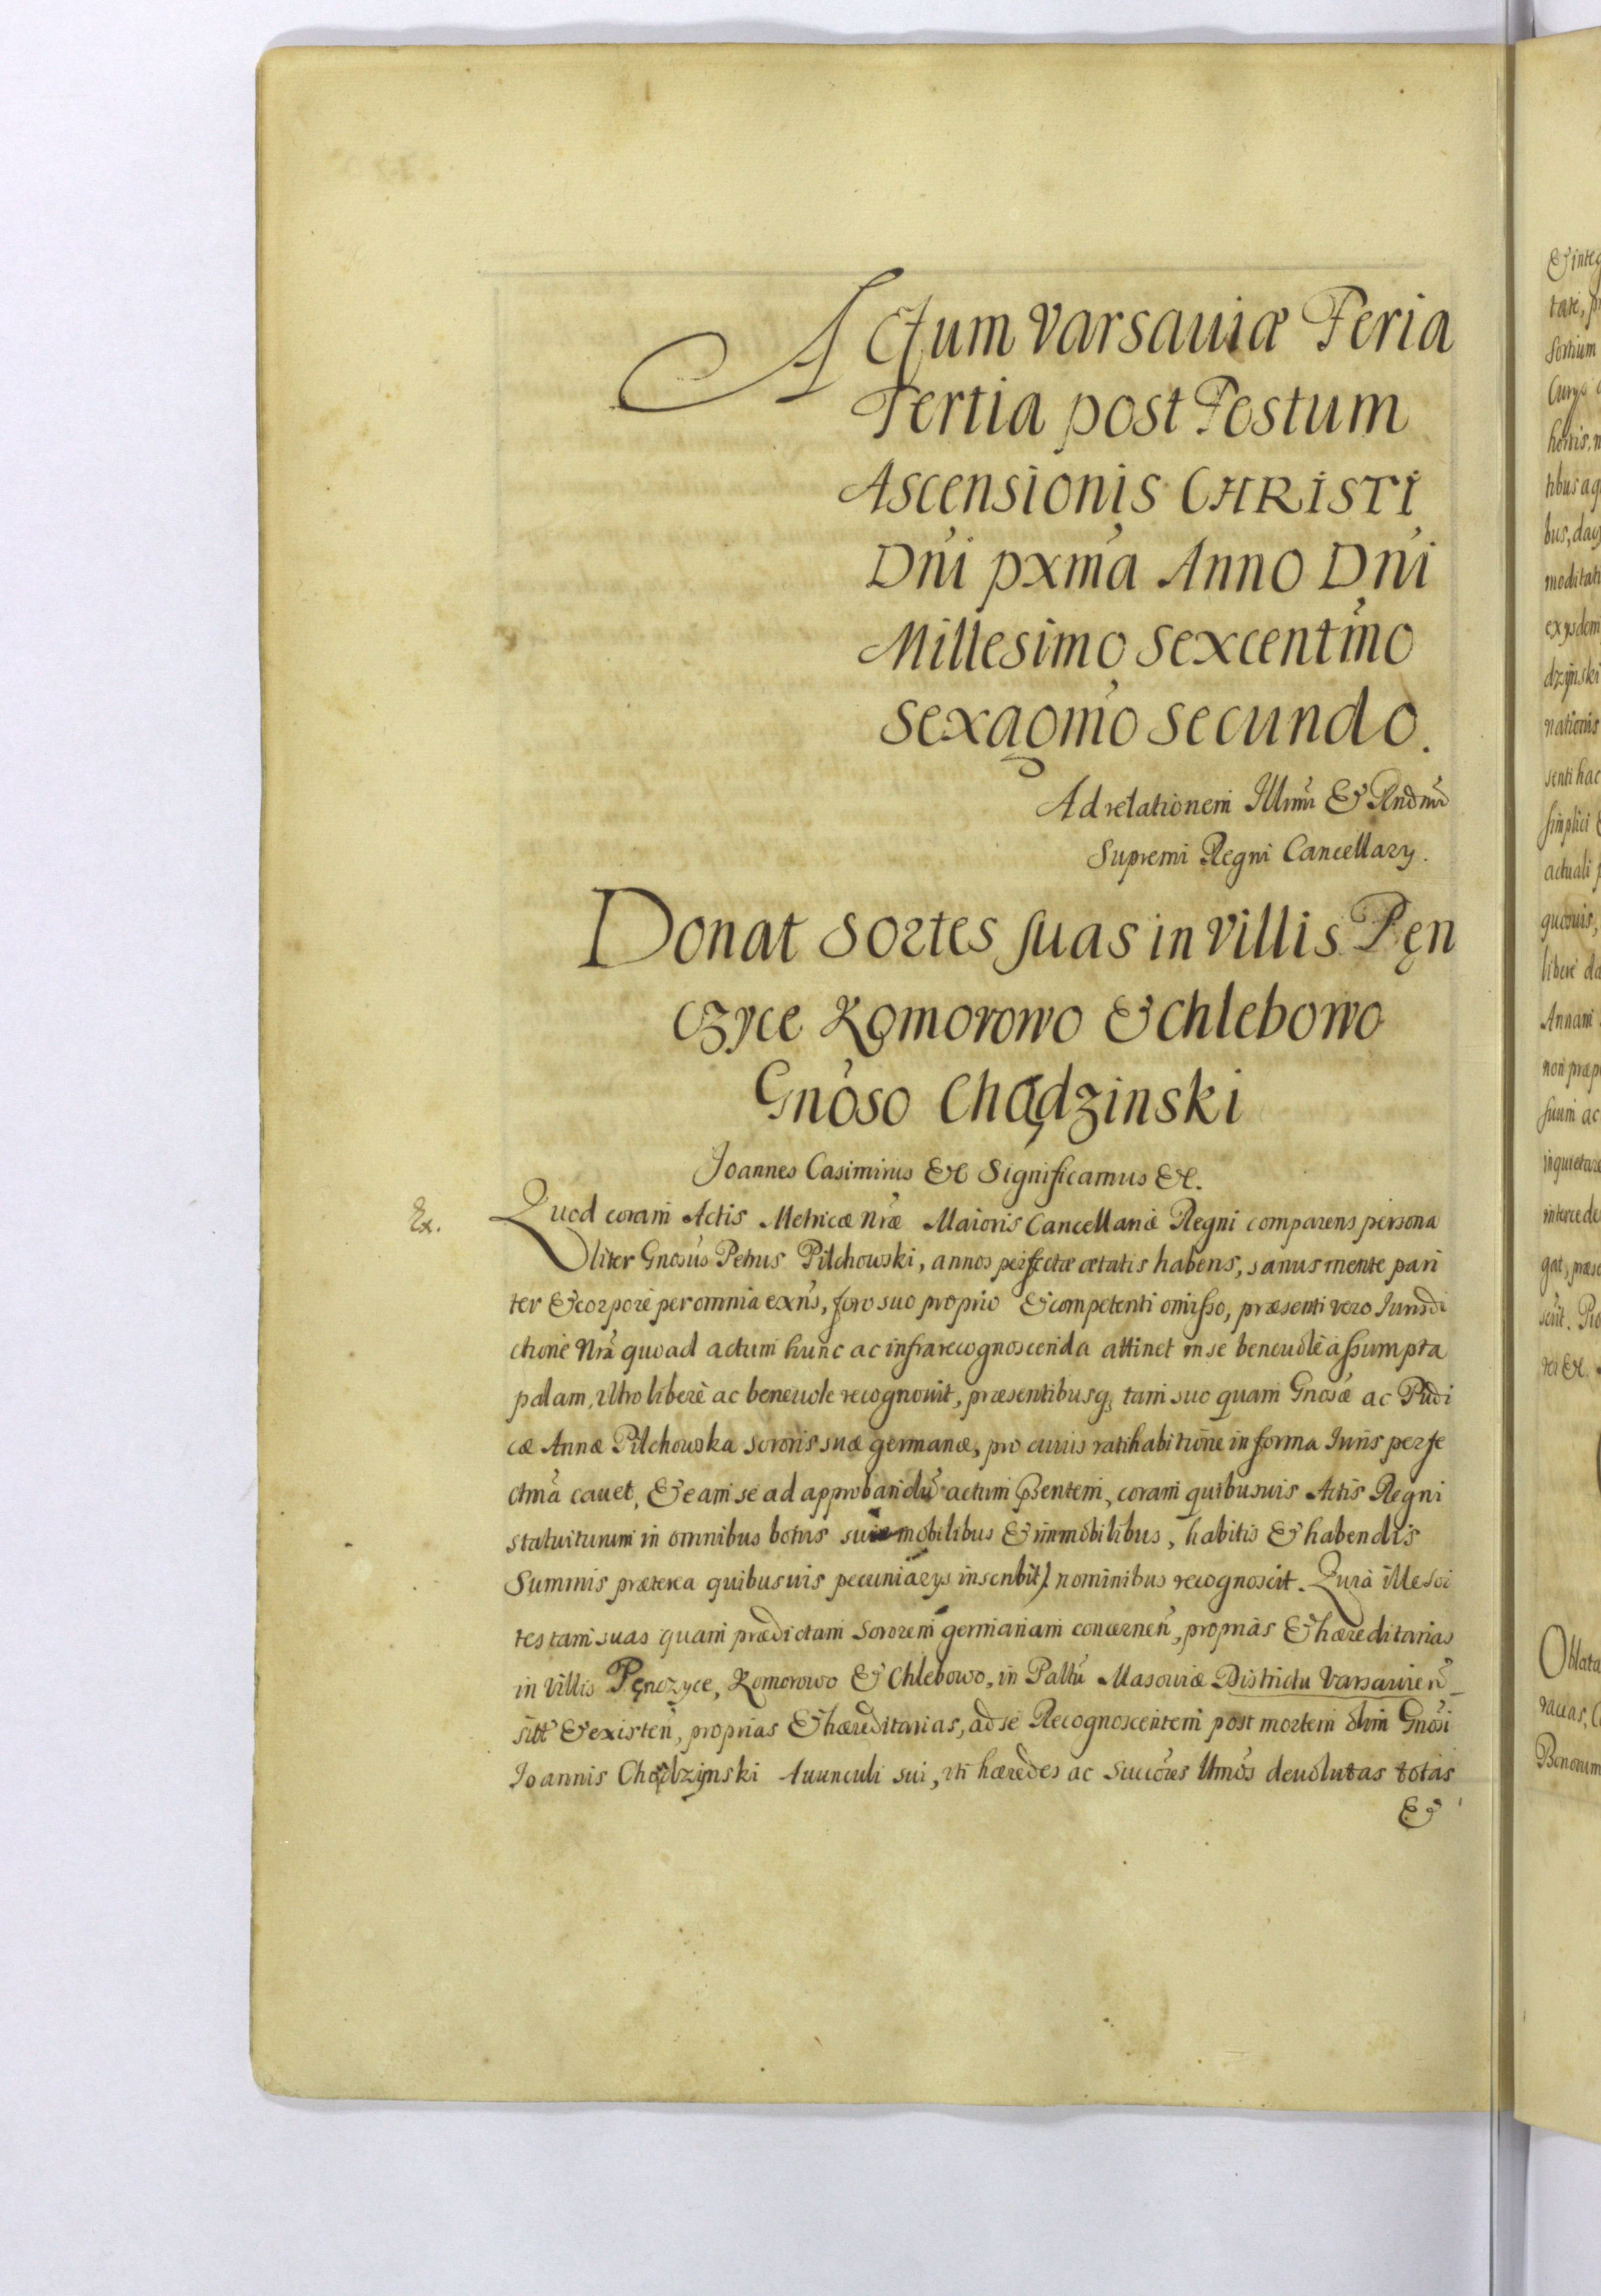 Actum Varsauiæ Feria
Tertia post Festum
Ascensionis CHRISTI
Dńi pxmá Anno Dńi
Millesimo sexcentm̃o
sexagm̃o secundo.
Ad relationem Illmi & Rndmi
Supremi Regni Cancellary.
Donat sortes suas in villis Pęn
czyce Komorowo & Chlebowo
Gnoso Chądzinski
Joannes Casimirus &c Significamus &c.
Ex.
Quod coram Actis Metricæ Nræ Maioris Cancellariæ Regni comparens persona
liter Gnosus Petrus Pilchowski, annos perfectæ ætatis habens, sanus mente pari
ter & corpore per omnia exñs, foro suo proprio & competenti omisso, præsenti vero Jurisdi
ctione Nrã quoad actum hunc ac infrarecognoscenda attinet in se beneuole assumpta
palam, vltro libere ac beneuole recognouit, præsentibusq; tam suo quam Gnosæ ac Pudi
cæ Annæ Pilchowska sororis suæ germanæ, pro cuius ratihabitione in forma Juris perfe
ctmã cauet, & eam se ad approbandũ actum pñtem, coram quibusuis Actis Regni
statuiturum in omnibus bonis suis mobilibus & immobilibus, habitis & habendis
Summis præterea quibusuis pecuniarys inscribit, nominibus recognoscit. Quia ille sor
tes tam suas quam prædictam sororem germanam concerneñ, proprias & hæreditarias
in villis Pęnczyce, Komorowo & Chlebowo, in Palltũ Masouiæ Districtu Varsauieñ
sitt & existeñ, proprias & hæreditarias, ad se Recognoscentem post mortem olim Gnosi
Joannis Chądzynski Auunculi sui, vti hæredes ac succores Vmos deuolutas totas
&